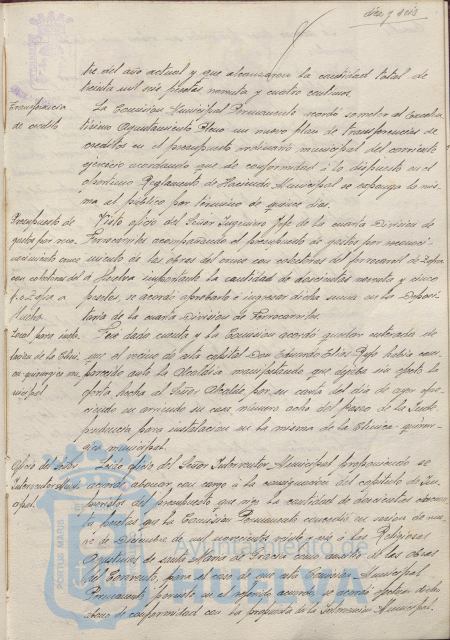 diez y seis
tre del año actual y que alcanzaron la cantidad total de
treinta mil seis pesetas noventa y cuatro centimos.
Transferencia
de credito
La Comision Municipal Permanente acordó someter al Excelen-
tisimo Ayuntamiento Pleno un nuevo plan de transferencias de
creditos en el presupuesto ordinario municipal del corriente
ejercicio acordando que de conformidad á lo dispuesto en el
Reglamento de Hacienda Municipal se exponga la mis-
ma al publico por término de quince dias.
Presupuesto de
gastos por reco-
nocimiento cruce
con colectores del
f.c. Zafra a
Huelva
Visto oficio del Señor Ingeniero Jefe de la cuarta Division de
Ferrocarriles acompañando el presupuesto de gastos por reconoci-
miento de las obras del cruce con colectores del ferrocarril de Zafra
á Huelva importante la cantidad de doscientas noventa y cinco
pesetas, se acordó aprobarlo é ingresar dicha suma en la Deposi-
taria de la cuarta Division de Ferrocarriles.
Local para insta-
lacion de la Clini-
ca quirurgica mu-
nicipal
Fue dado cuenta y la Comision acordó quedar enterada de
que el vecino de esta capital Don Eduardo Diaz habia com-
parecido ante la Alcaldia manifestando que dejaba sin efecto la
oferta hecha al Señor Alcalde por su carta del dia de ayer ofre-
ciendo en arriendo su casa número ocho del Paseo de la Inde-
pendencia para instalacion en la misma de la Clinica quirur-
gica municipal.
Oficio del Señor
Interventor Muni-
cipal.
Leido oficio del Señor Interventor Municipal proponiendo se
acordó abonar con cargo á la consignacion del capitulo de Im-
previstos del presupuesto que rige la cantidad de doscientas
pesetas que la Comision Permanente concedió en sesion de nue-
ve de Diciembre de mil novecientos veinte y seis á las Religiosas
Agustinas de Santa Maria de Gracia con motivo de las obras
del Convento, para el caso de que esta Comision Municipal
Permanente el referido acuerdo, se acordó dicho
abono de conformidad con la propuesta de la Intervencion Municipal.
Ayuntamiento de
HUELVA
PORTUS MARIS